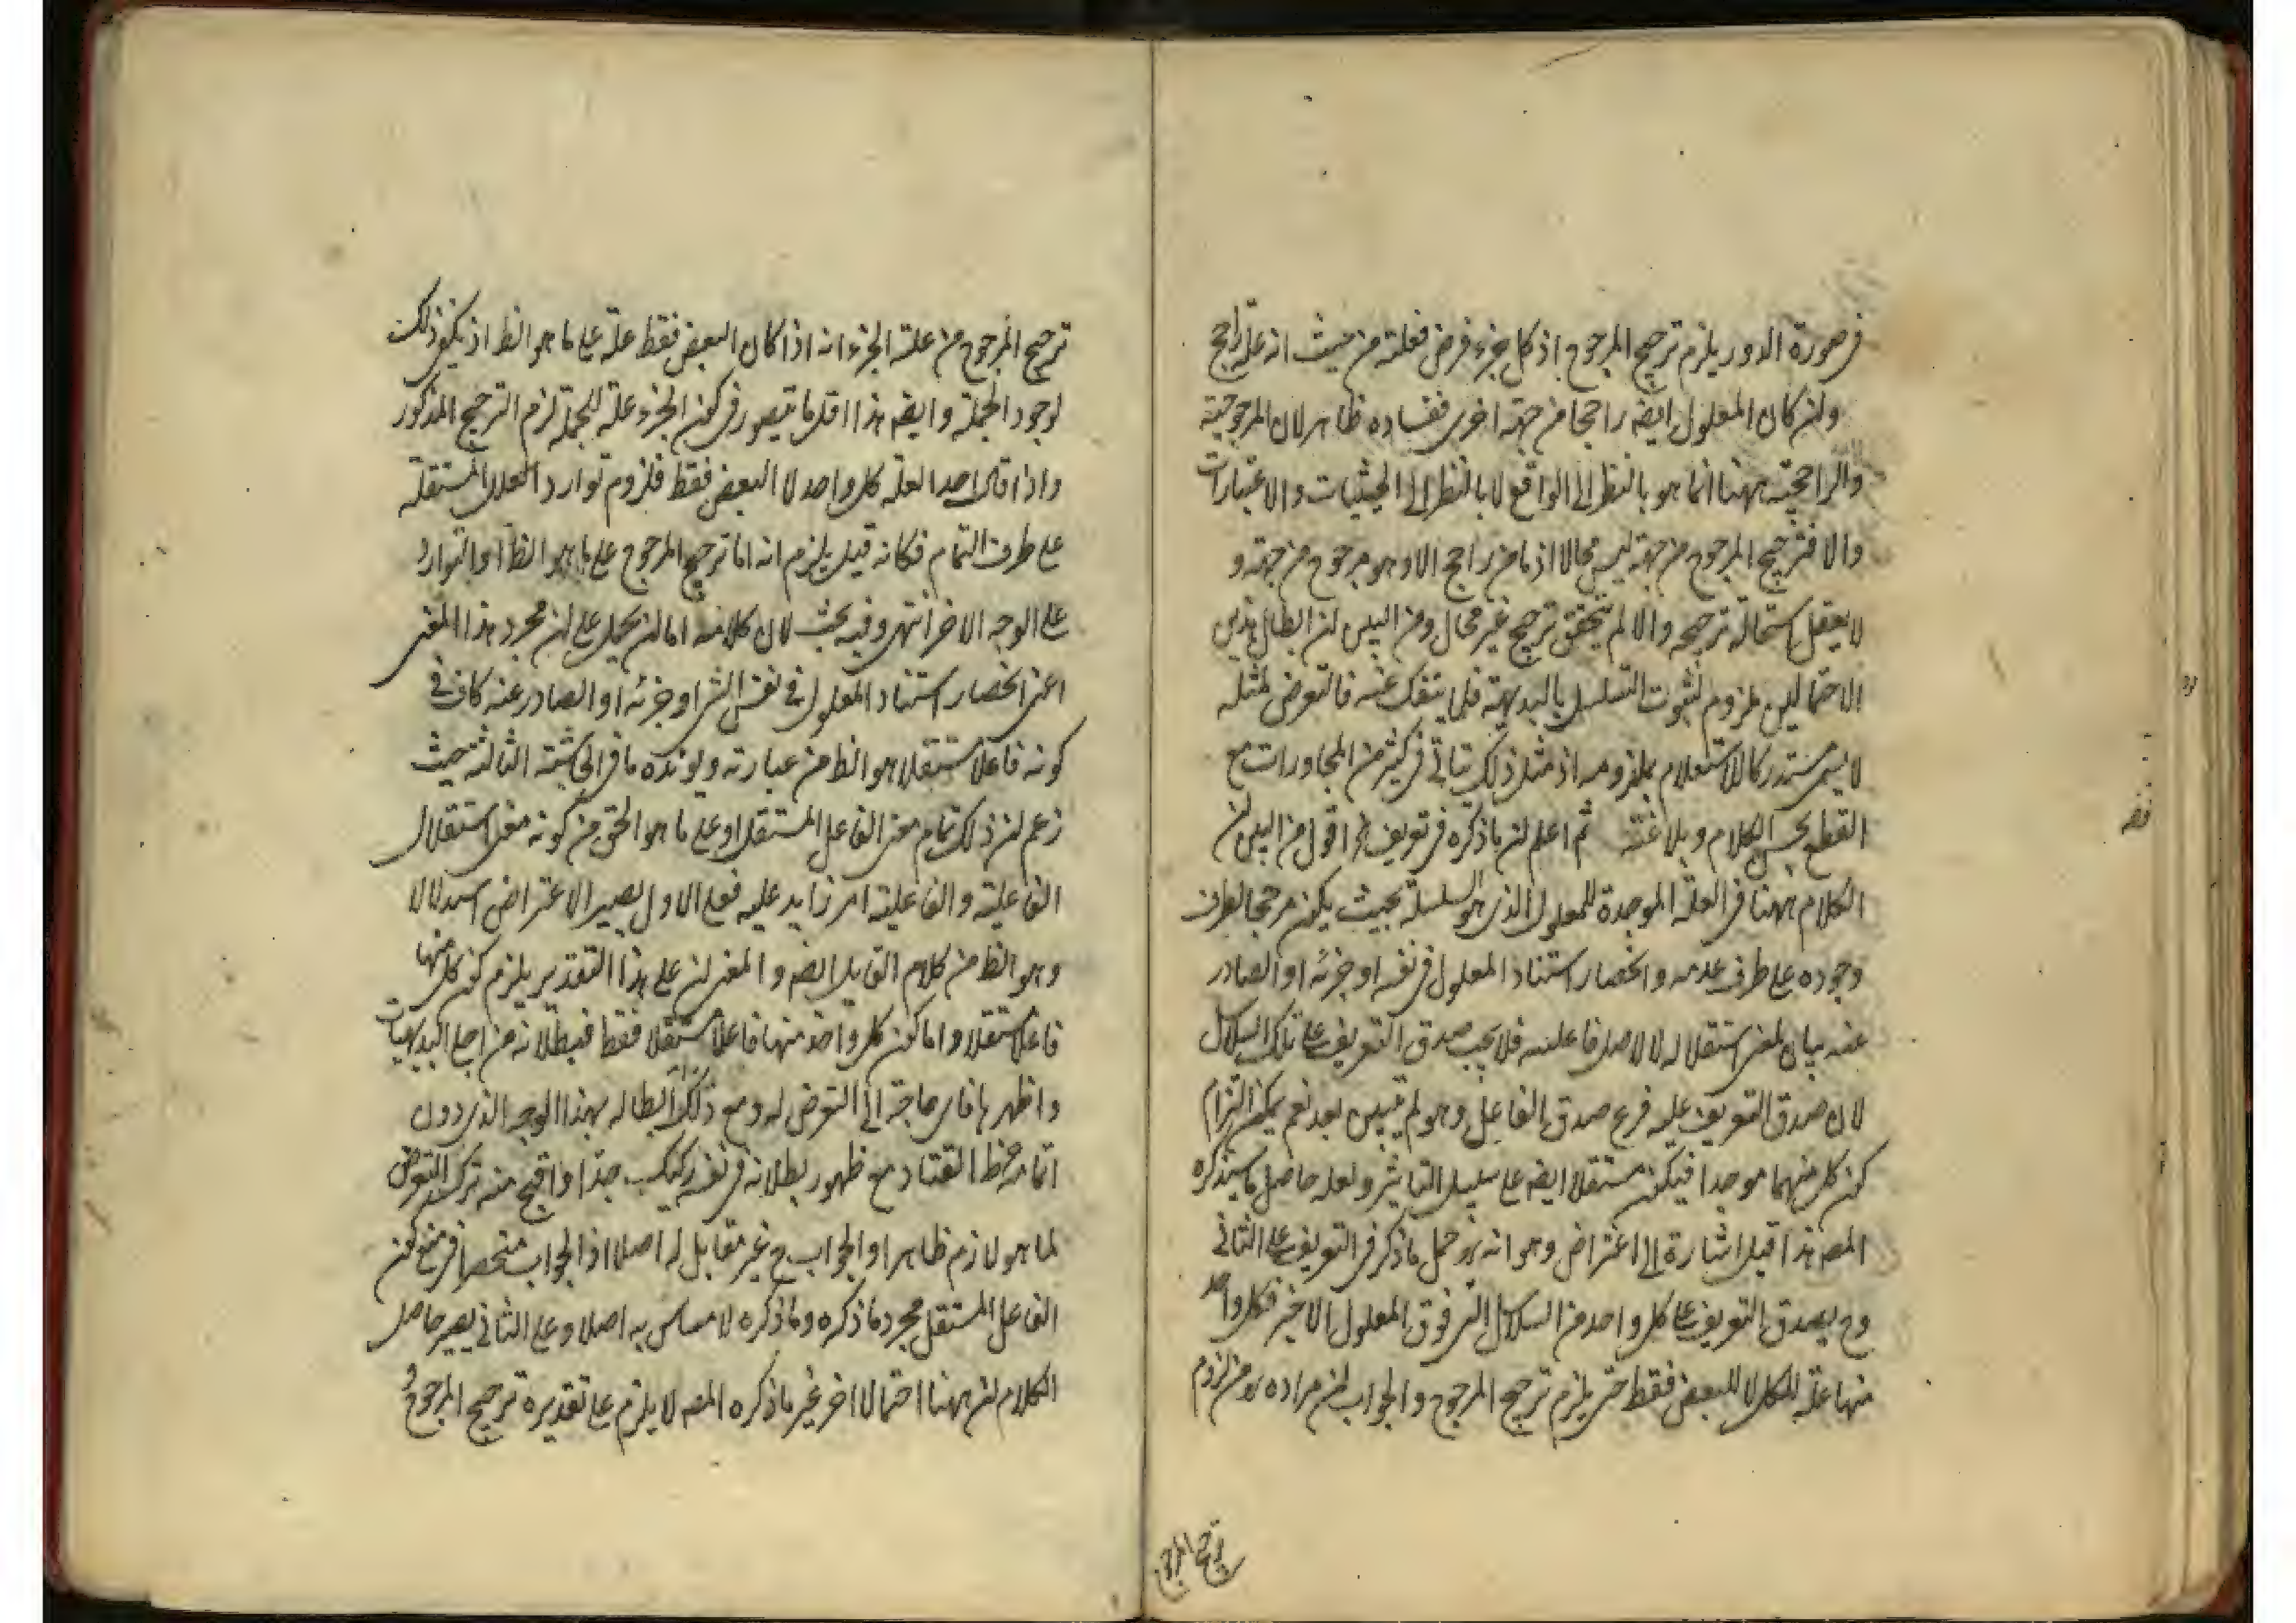 في صورة الدور يلزم ترجيح المرجوح اذ كل جزء فرض فعلته من حيث انه علة راجح
ولن كان المعلول ايضه راجحا من جهة اخرى ففساده ظاهر لان المرجوحية
والراجحية ههنا انما هو بالنظر الى الواقع لا بالنظر الى الحيثيات والاعتبارات
والا فترجيح المرجوح من جهة ليس محالا اذ ما من راجح الا وهو مرجوح من جهة و
لا يعقل استحالة ترجيحه والا لم يتحقق ترجيح غير محال ومن البين لن ابطال هذين
الاحتمالين ملزوم لثبوت التسلسل بالبديهة فلما ينفك عنه فالتعرض لمثله
لا يسمى مستدركا لاستعلام ملزومه اذ مثل ذلك يتاتى في كثير من المحاورات مع
القطع بحسن الكلام وبلاغته ثم اعلم لن ما ذكره في تعريف اقول من البين لن
الكلام ههنا في العلة الموجدة للمعلول الذي هو السلسلة بحيث يكون مرجحا لطرف
وجوده على طرف عدمه وانحصار استناد المعلول في نفسه او جزئه او الصادر
عنه بيان لمعنى استقلاله لا لاصل فاعليته فلا يجب صدق التعريف على تلك السلاسل
لان صدق التعريف عليه فرع صدق الفاعل وهو لم يتبين بعد نعم يمكن التزام
كون كل منهما موجدا فيكون مستقلا ايضه على سبيل التاثير ولعله حاصل ما سيذكره
المصه هذا قيل اشارة الى اعتراض وهو انه لو حمل ما ذكر في التعريف على الثاني
وح يصدق التعريف على كل واحد من السلاسل التي فوق المعلول الاخير فكل واحد
منها علة للكل لا للبعض فقط حتى يلزم ترجيح المرجوح والجواب لن مراده من لزوم
ترجيح المرجوح
ترجيح المرجوح من علة الجزء انه اذا كان البعض فقط علة على ما هو الظ اذ يكفي ذلك
لوجود الجملة وايضه هذا اقل ما يتصور في كون الجزء علة للجملة لزم الترجيح المذكور
واذا قال احد العلة كل واحد لا البعض فقط فلزوم توارد العلل المستقلة
على طرف التمام فكانه قيل يلزم انه اما ترجيح المرجوح على ما هو الظ او التوارد
على الوجه الاخر انتهى وفيه بحث لان كلامه اما لن يحمل على لن مجرد هذا المعنى
اعنى انحصار استناد المعلول في نفس الشى او جزئه او الصادر عنه كاف في
كونه فاعلا مستقلا هو الظ من عبارته ويؤيده ما في الحاشية الثالثة حيث
زعم لن ذلك تمام معنى الفاعل المستقل او على ما هو الحق من كونه معنى استقلال
الفاعلية والفاعلية امر زايد عليه فعلى الاول يصير الاعتراض استدلالا
وهو الظ من كلام القايل ايضه والمعنى لن على هذا التقدير يلزم كون كل منها
فاعلا مستقلا واما كون كل واحد منها فاعلا مستقلا فقط فبطلانه من اجلى البديهيات
واظهرها فاى حاجة الى التعرض له ومع ذلك ابطاله بهذا الوجه الذي دون
اتمامه خرط القتاد مع ظهور بطلانه في نفسه ركيك جدا واقبح منه ترك التعرض
لما هو لازم ظاهرا والجواب ح غير مقابل له اصلا اذ الجواب منحصر في منع كون
الفاعل المستقل مجرد ما ذكره وما ذكره لا مساس به اصلا وعلى الثاني يصير حاصل
الكلام لن ههنا احتمالا اخر غير ما ذكره المصه لا يلزم على تقديره ترجيح المرجوح و